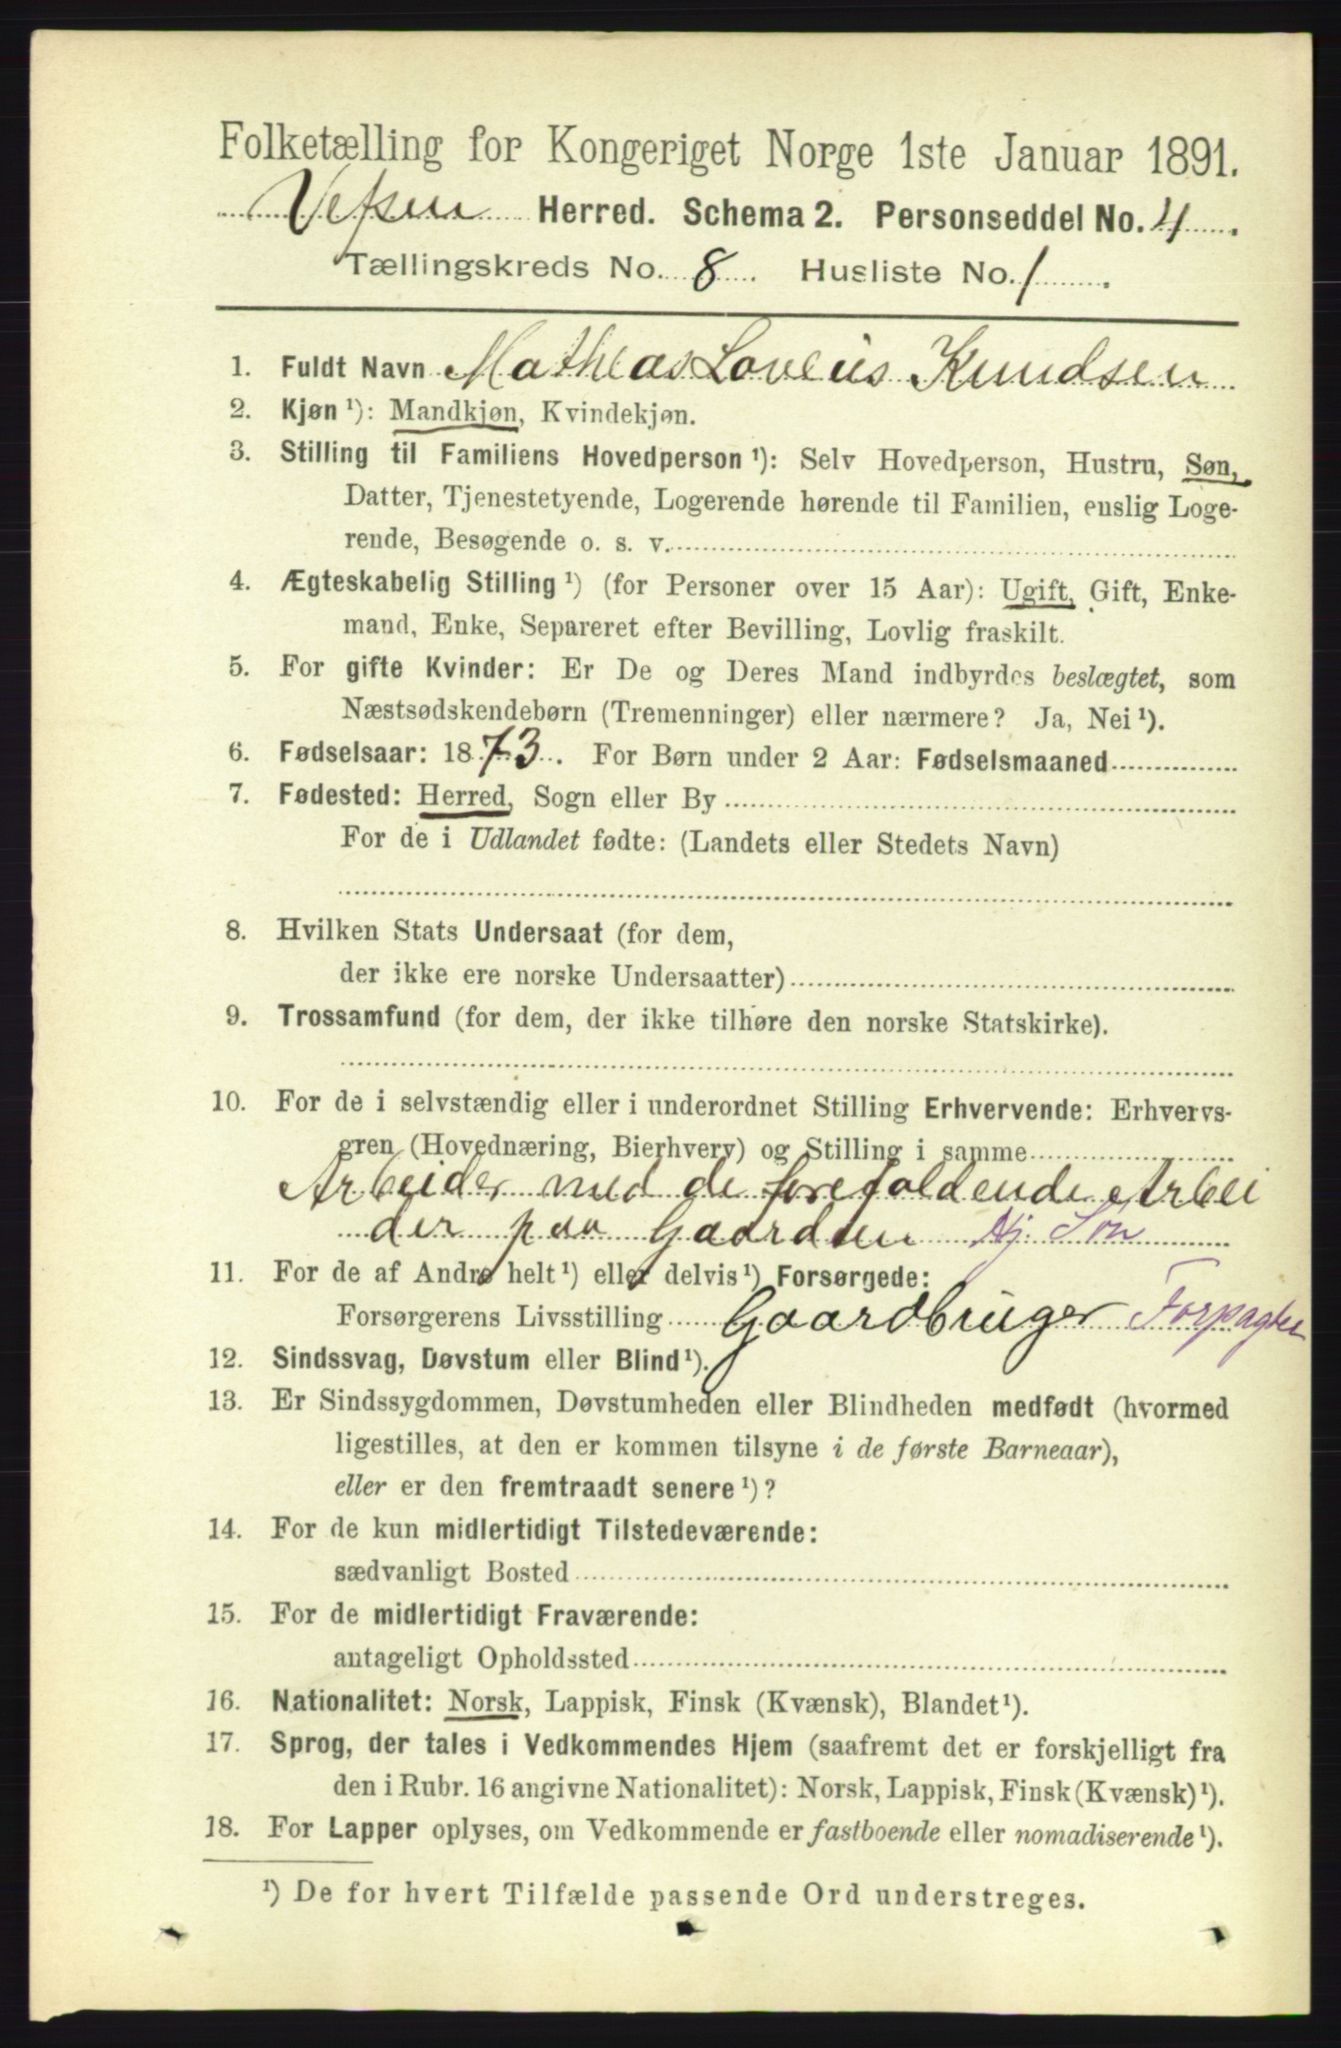 Folketælling for Kongeriget Norge 1ste Januar 1891.
Vefsen Herred. Schema 2. Personseddel No. 4.
Tællingskreds No. 8. Husliste No. 1.
1. Fuldt Navn Mathias Loveus Knudsen
2. Kjøn ¹): Mandkjøn, Kvindekjøn.
3. Stilling til Familiens Hovedperson ¹): Selv Hovedperson, Hustru, Søn,
Datter, Tjenestetyende, Logerende hørende til Familien, enslig Loge-
rende, Besøgende o. s. v.
4. Ægteskabelig Stilling ¹) (for Personer over 15 Aar): Ugift, Gift, Enke-
mand, Enke, Separeret efter Bevilling, Lovlig fraskilt.
5. For gifte Kvinder: Er De og Deres Mand indbyrdes beslægtet, som
Næstsødskendebørn (Tremenninger) eller nærmere? Ja, Nei ¹).
6. Fødselsaar: 1873. For Børn under 2 Aar: Fødselsmaaned
7. Fødested: Herred, Sogn eller By
For de i Udlandet fødte: (Landets eller Stedets Navn)
8. Hvilken Stats Undersaat (for dem,
der ikke ere norske Undersaatter)
9. Trossamfund (for dem, der ikke tilhøre den norske Statskirke).
10. For de i selvstændig eller i underordnet Stilling Erhvervende: Erhvervs-
gren (Hovednæring, Bierhverv) og Stilling i samme
Arbeider med de forefaldende Arbei
der paa Gaarden Hj. Søn
11. For de af Andre helt ¹) eller delvis ¹) Forsørgede:
Forsørgerens Livsstilling Gaardbruger Forpagter
12. Sindssvag, Døvstum eller Blind ¹).
13. Er Sindssygdommen, Døvstumheden eller Blindheden medfødt (hvormed
ligestilles, at den er kommen tilsyne i de første Barneaar),
eller er den fremtraadt senere ¹)?
14. For de kun midlertidigt Tilstedeværende:
sædvanligt Bosted
15. For de midlertidigt Fraværende:
antageligt Opholdssted
16. Nationalitet: Norsk, Lappisk, Finsk (Kvænsk), Blandet ¹).
17. Sprog, der tales i Vedkommendes Hjem (saafremt det er forskjelligt fra
den i Rubr. 16 angivne Nationalitet): Norsk, Lappisk, Finsk (Kvænsk) ¹).
18. For Lapper oplyses, om Vedkommende er fastboende eller nomadiserende ¹).
¹) De for hvert Tilfælde passende Ord understreges.